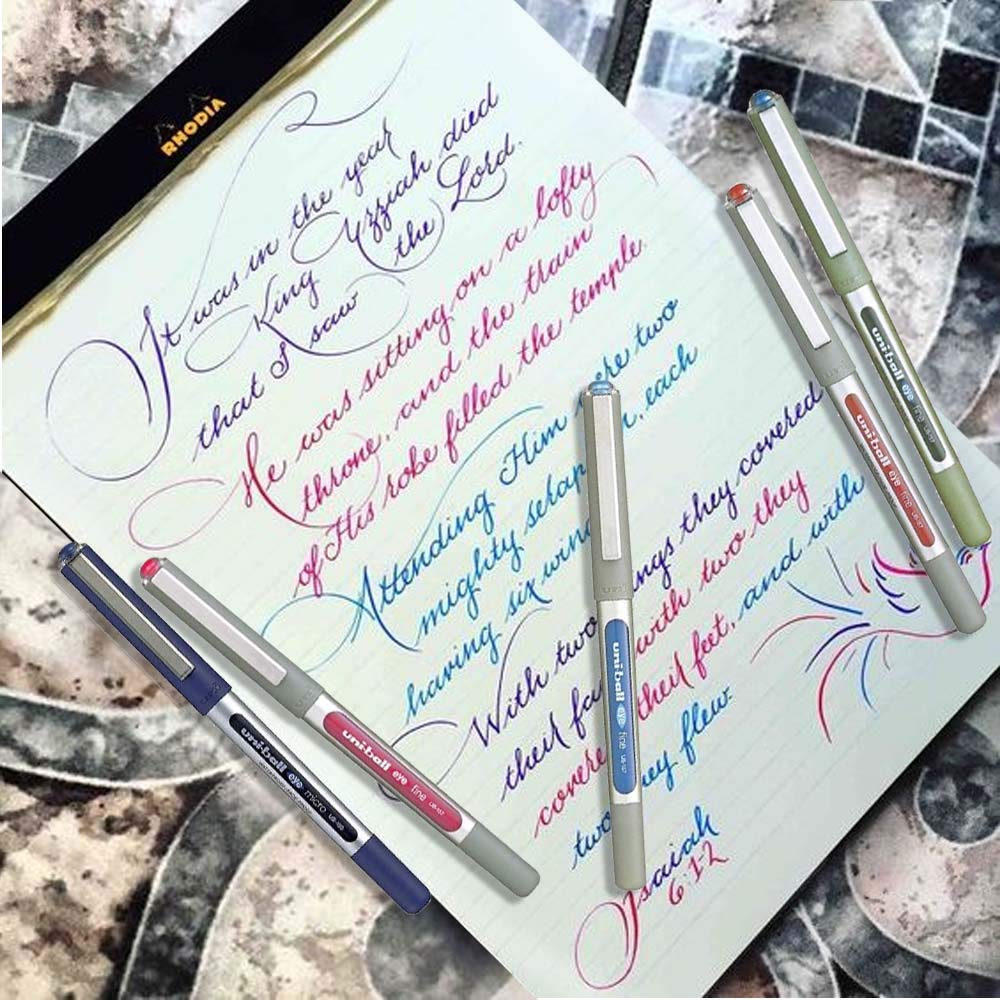 RHODIA
It was in the year
King Uzziah died
that I saw the Lord.
He was sitting on a lofty
throne, and the train
of His robe filled the temple.
Attending Him were two
mighty seraph, each
having six wing
With two wings they covered
their fa with two they
covere their feet, and with
two ey flew.
Isaiah
6:1-2
uni-ball eye micro UB-150
uni-ball eye fine UB-157
uni-ball eye fine UB-157
uni-ball eye fine UB-157
uni-ball eye fine UB-157